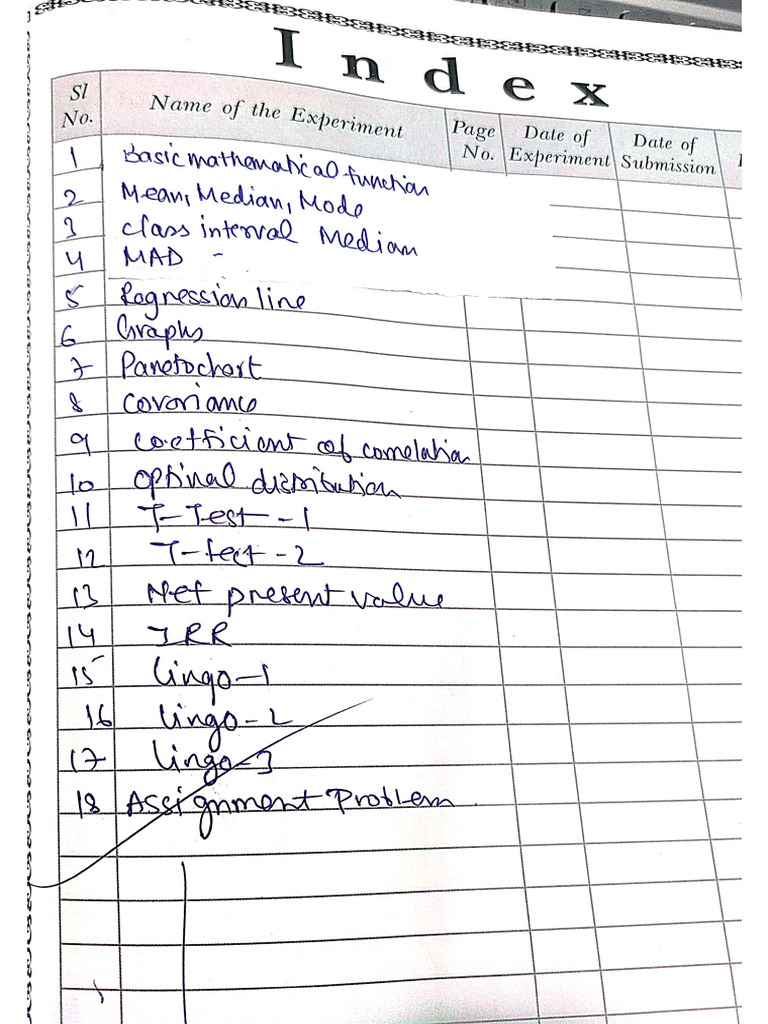 Index
Sl No. Name of the Experiment Page No. Date of Experiment Date of Submission
1 Basic mathematical function
2 Mean, Median, Mode
3 class interval Median
4 MAD -
5 Regression line
6 Graphs
7 Paretochart
8 covariance
9 co-efficient of correlation
10 optinal distribution
11 T-Test-1
12 T-test-2
13 Net present value
14 IRR
15 Lingo-1
16 Lingo-2
17 Lingo-3
18 Assignment Problem